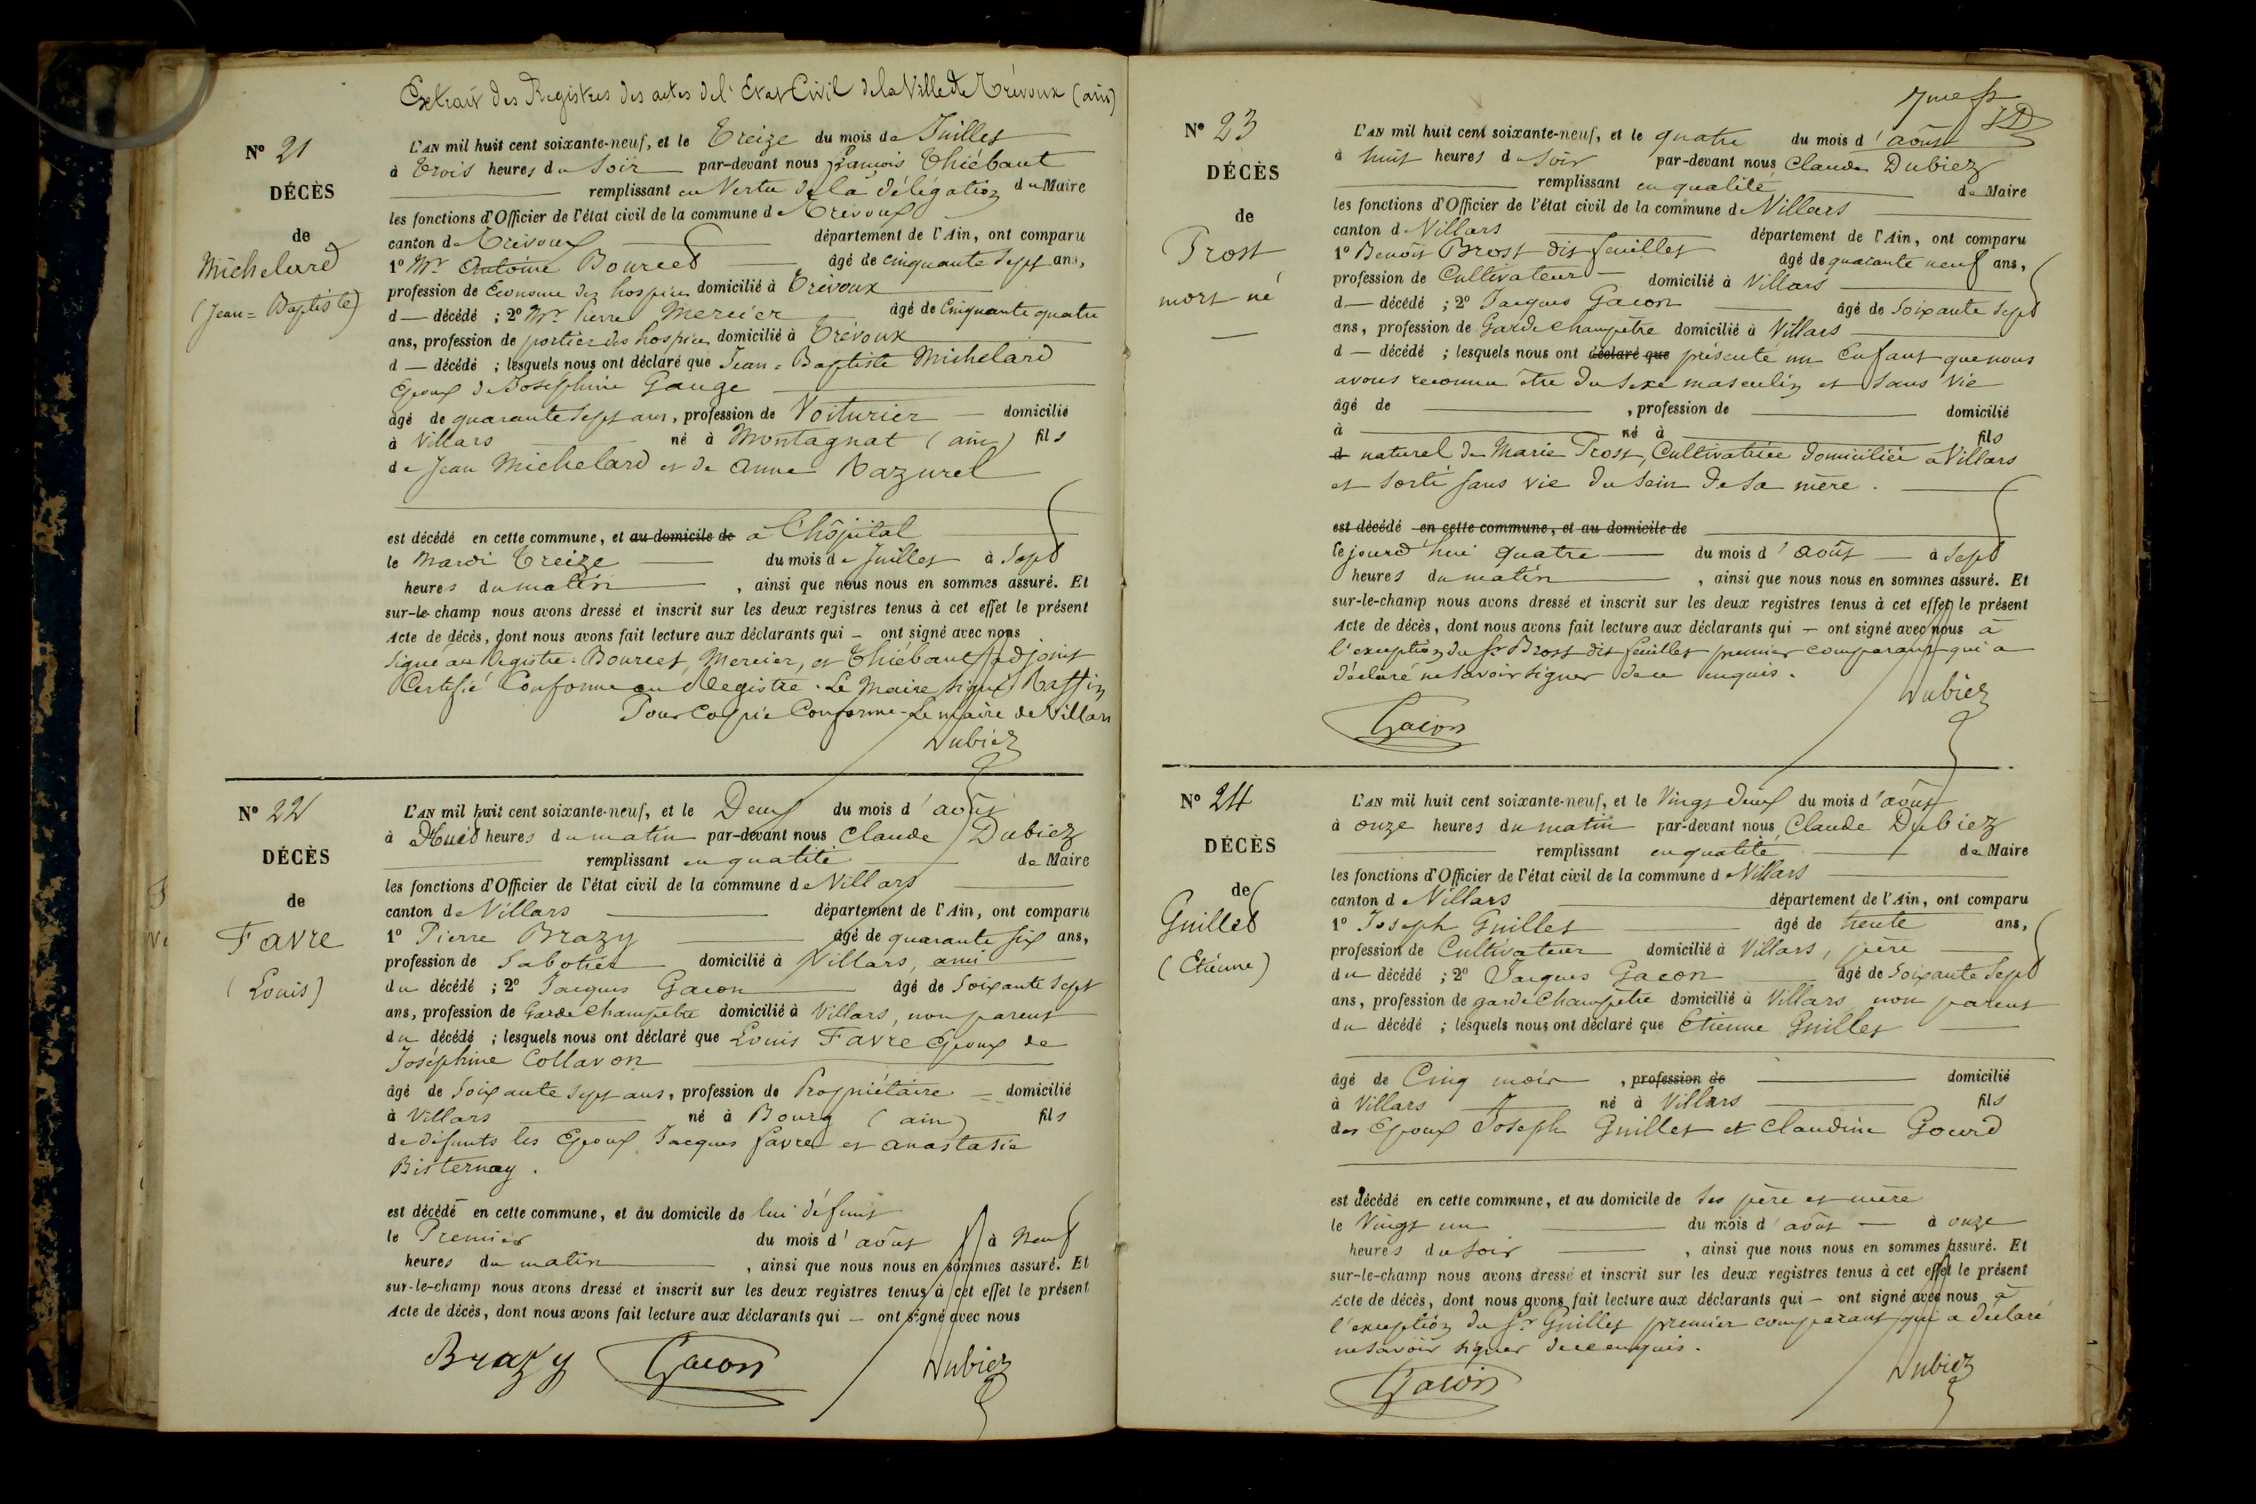 Extrait des Registres des actes de l'Etat Civil de la Ville de Trévoux (ain)
N° 21
DÉCÈS
de
Michelard
(Jean-Baptiste)
L'AN mil huit cent soixante-neuf, et le Treize du mois de Juillet
à Trois heures du Soir par-devant nous François Thiébaut
remplissant en Vertu de la délégation du Maire
les fonctions d'Officier de l'état civil de la commune de Trévoux
canton de Trévoux département de l'Ain, ont comparu
1° Mr Antoine Bourcet âgé de cinquante sept ans,
profession de Econome des hospices domicilié à Trévoux
d — décédé ; 2° Mr Pierre Mercier âgé de Cinquante quatre
ans, profession de portier des hospices domicilié à Trévoux
d — décédé ; lesquels nous ont déclaré que Jean-Baptiste Michelard
Epoux de Joséphine Gauge
âgé de quarante sept ans, profession de Voiturier — domicilié
à Villars né à Montagnat (ain) fils
de Jean Michelard et de Anne Razurel
est décédé en cette commune, et au domicile de à l'hôpital
le Mardi Treize du mois de Juillet à Sept
heures du matin, ainsi que nous nous en sommes assuré. Et
sur-le-champ nous avons dressé et inscrit sur les deux registres tenus à cet effet le présent
Acte de décès, dont nous avons fait lecture aux déclarants qui — ont signé avec nous
Signé au Registre : Bourcet, Mercier, et Thiébaut adjoint
Certifié Conforme au Registre. Le Maire signé Raffin
Pour Copie Conforme - Le maire de Villars
Dubiez
N° 22
DÉCÈS
de
Favre
(Louis)
L'AN mil huit cent soixante-neuf, et le Deux du mois d'août
à Huit heures du matin par-devant nous Claude Dubiez
remplissant en qualité de Maire
les fonctions d'Officier de l'état civil de la commune de Villars
canton de Villars département de l'Ain, ont comparu
1° Pierre Brazy âgé de quarante six ans,
profession de Sabotier domicilié à Villars, ami
du décédé ; 2° Jacques Gacon âgé de Soixante sept
ans, profession de Garde Champêtre domicilié à Villars, non parent
du décédé ; lesquels nous ont déclaré que Louis Favre Epoux de
Joséphine Collavon
âgé de Soixante sept ans, profession de Propriétaire — domicilié
à Villars né à Bourg (ain) fils
de défunts les Epoux Jacques favre et anastasie
Bisternay.
est décédé en cette commune, et au domicile de lui défunt
le Premier du mois d'août à Neuf
heures du matin, ainsi que nous nous en sommes assuré. Et
sur-le-champ nous avons dressé et inscrit sur les deux registres tenus à cet effet le présent
Acte de décès, dont nous avons fait lecture aux déclarants qui — ont signé avec nous
Brazy Gacon Dubiez
7me ft
N° 23
DÉCÈS
de
Prost
mort né
L'AN mil huit cent soixante-neuf, et le quatre du mois d'août
à huit heures du Soir par-devant nous Claude Dubiez
remplissant en qualité de Maire
les fonctions d'Officier de l'état civil de la commune de Villars
canton de Villars département de l'Ain, ont comparu
1° Benoît Brost dit feuillet âgé de quarante neuf ans,
profession de Cultivateur — domicilié à Villars
d — décédé ; 2° Jacques Gacon âgé de Soixante sept
ans, profession de Garde Champêtre domicilié à Villars
d — décédé ; lesquels nous ont déclaré que présenté un Enfant que nous
avons reconnu être du sexe masculin et sans vie
âgé de , profession de domicilié
à né à fils
d naturel de Marie Prost, Cultivatrice domiciliée à Villars
et sorti sans vie du sein de sa mère.
est décédé en cette commune, et au domicile de
le jourd'hui quatre du mois d'août — à Sept
heures du matin, ainsi que nous nous en sommes assuré. Et
sur-le-champ nous avons dressé et inscrit sur les deux registres tenus à cet effet le présent
Acte de décès, dont nous avons fait lecture aux déclarants qui — ont signé avec nous à
l'exception du Sr Brost dit feuillet premier comparant qui a
déclaré ne savoir signer de ce enquis.
Gacon Dubiez
N° 24
DÉCÈS
de
Guillet
(Etienne)
L'AN mil huit cent soixante-neuf, et le Vingt deux du mois d'août
à onze heures du matin par-devant nous Claude Dubiez
remplissant en qualité de Maire
les fonctions d'Officier de l'état civil de la commune d Villars
canton d Villars département de l'Ain, ont comparu
1° Joseph Guillet âgé de trente ans,
profession de Cultivateur domicilié à Villars, père
du décédé ; 2° Jacques Gacon âgé de Soixante sept
ans, profession de garde Champêtre domicilié à Villars non parent
du décédé ; lesquels nous ont déclaré que Etienne Guillet
âgé de Cinq mois, profession de domicilié
à Villars né à Villars fils
des Epoux Joseph Guillet et Claudine Gourd
est décédé en cette commune, et au domicile de Ses père et mère
le Vingt un du mois d'août — à onze
heures du soir, ainsi que nous nous en sommes assuré. Et
sur-le-champ nous avons dressé et inscrit sur les deux registres tenus à cet effet le présent
Acte de décès, dont nous avons fait lecture aux déclarants qui — ont signé avec nous à
l'exception du Sr Guillet premier comparant qui a déclaré
ne savoir signer de ce enquis.
Gacon Dubiez